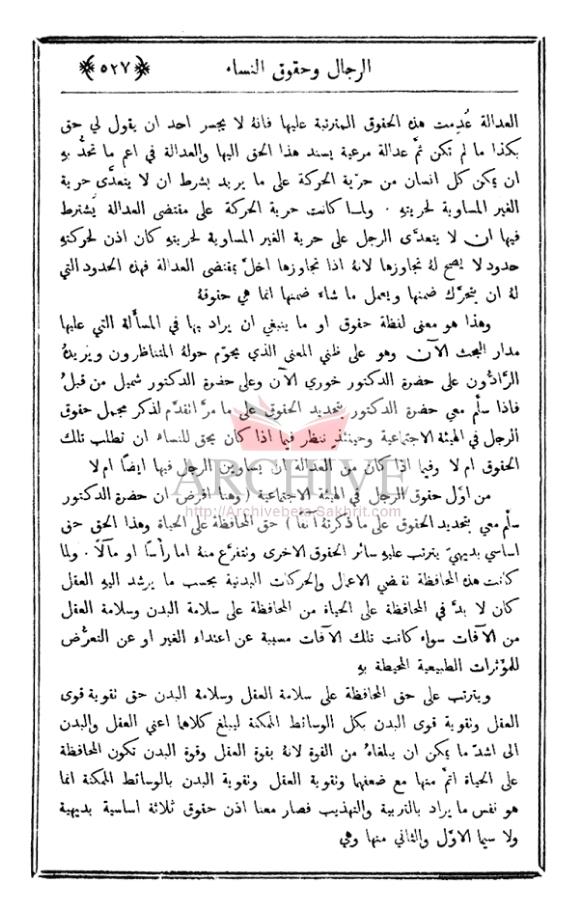 الرجال وحقوق النساء ﴿٥٢٧﴾
العدالة عُدِمت هذه الحقوق المترتبة عليها فانهُ لا يجسر احد ان يقول لي حق
بكذا ما لم تكن ثمَّ عدالة مرعية يسند هذا الحق اليها والعدالة في اعم ما تحدُّ بهِ
ان يمكن كل انسان من حرّية الحركة على ما يريد بشرط ان لا يتعدَّى حرية
الغير المساوية لحريتهِ . ولما كانت حرية الحركة على مقتضى العدالة يُشترط
فيها ان لا يتعدَّى الرجل على حرية الغير المساوية لحريتهِ كان اذن لحركتهِ
حدود لا يصح لهُ تجاوزها لانهُ اذا تجاوزها اخلَّ بمقتضى العدالة فهذه الحدود التي
لهُ ان يتحرَّك ضمنها ويعمل ما شاء ضمنها انما هي حقوقهُ
وهذا هو معنى لفظة حقوق او ما ينبغي ان يراد بها في المسأَلة التي عليها
مدار البحث الآن وهو على ظني المعنى الذي يحوّم حولهُ المتناظرون ويريدهُ
الرَّادُّون على حضرة الدكتور خوري الآن وعلى حضرة الدكتور شميل من قبلُ
فاذا سلَّم معي حضرة الدكتور بتحديد الحقوق على ما مرَّ انقدَّم لذكر مجمل حقوق
الرجل في الهيئة الاجتماعية وحينئذٍ ننظر فيما اذا كان يحق للنساء ان تطلب تلك
الحقوق ام لا وفيما اذا كان من العدالة ان يساوين الرجل فيها ايضًا ام لا
ARCHIVE
http://Archivebeta.Sakhrit.com
من اوّل حقوق الرجل في الهيئة الاجتماعية (وهنا افرض ان حضرة الدكتور
سلَّم معي بتحديد الحقوق على ما ذكرتهُ آنفًا) حق المحافظة على الحياة وهذا الحق حق
اساسي بديهيّ يترتب عليهِ سائر الحقوق الاخرى وتتفرَّع منهُ اما رأسًا او مآلًا . ولما
كانت هذه المحافظة تقتضي الاعمال والحركات البدنية بحسب ما يرشد اليهِ العقل
كان لا بدَّ في المحافظة على الحياة من المحافظة على سلامة البدن وسلامة العقل
من الآفات سواء كانت تلك الآفات مسببة عن اعتداء الغير او عن التعرُّض
للمؤثرات الطبيعية المحيطة بهِ
ويترتب على حق المحافظة على سلامة العقل وسلامة البدن حق تقوية قوى
العقل وتقوية قوى البدن بكل الوسائط الممكنة ليبلغ كلاهما اعني العقل والبدن
الى اشدّ ما يمكن ان يبلغاهُ من القوة لانهُ بقوة العقل وقوة البدن تكون المحافظة
على الحياة اتمَّ منها مع ضعفهما وتقوية العقل وتقوية البدن بالوسائط الممكنة انما
هو نفس ما يراد بالتربية والتهذيب فصار معنا اذن حقوق ثلاثة اساسية بديهية
ولا سيما الاوّل والثاني منها وهي